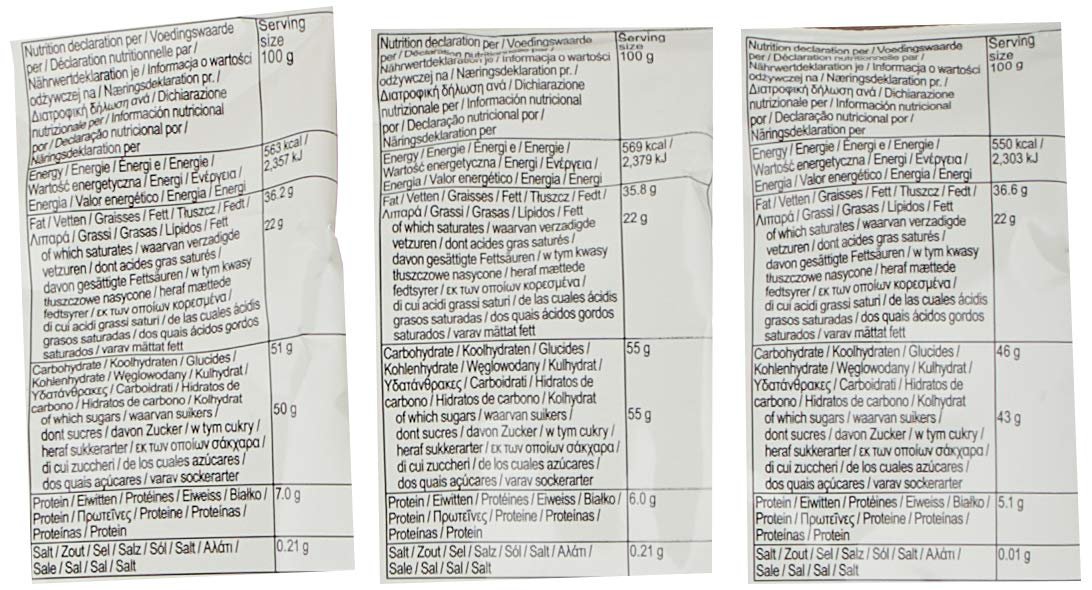 Nutrition declaration per / Voedingswaarde
per / Déclaration nutritionnelle par /
Nährwertdeklaration je / Informacja o wartości
odżywczej na / Næringsdeklaration pr. /
Διατροφική δήλωση ανά / Dichiarazione
nutrizionale per / Información nutricional
por / Declaração nutricional por /
Näringsdeklaration per
Serving
size
100 g
Energy / Energie / Énergi e / Energie /
Wartość energetyczna / Energi / Ενέργεια /
Energia / Valor energético / Energia / Energi
563 kcal /
2,357 kJ
Fat / Vetten / Graisses / Fett / Tłuszcz / Fedt /
Λιπαρά / Grassi / Grasas / Lípidos / Fett
36.2 g
of which saturates / waarvan verzadigde
vetzuren / dont acides gras saturés /
davon gesättigte Fettsäuren / w tym kwasy
tłuszczowe nasycone / heraf mættede
fedtsyrer / εκ των οποίων κορεσμένα /
di cui acidi grassi saturi / de las cuales ácidis
grasos saturadas / dos quais ácidos gordos
saturados / varav mättat fett
22 g
Carbohydrate / Koolhydraten / Glucides /
Kohlenhydrate / Węglowodany / Kulhydrat /
Υδατάνθρακες / Carboidrati / Hidratos de
carbono / Hidratos de carbono / Kolhydrat
51 g
of which sugars / waarvan suikers /
dont sucres / davon Zucker / w tym cukry /
heraf sukkerarter / εκ των οποίων σάκχαρα /
di cui zuccheri / de los cuales azúcares /
dos quais açúcares / varav sockerarter
50 g
Protein / Eiwitten / Protéines / Eiweiss / Białko /
Protein / Πρωτεΐνες / Proteine / Proteínas /
Proteínas / Protein
7.0 g
Salt / Zout / Sel / Salz / Sól / Salt / Αλάτι /
Sale / Sal / Sal / Salt
0.21 g
Nutrition declaration per / Voedingswaarde
per / Déclaration nutritionnelle par /
Nährwertdeklaration je / Informacja o wartości
odżywczej na / Næringsdeklaration pr. /
Διατροφική δήλωση ανά / Dichiarazione
nutrizionale per / Información nutricional
por / Declaração nutricional por /
Näringsdeklaration per
Serving
size
100 g
Energy / Energie / Énergi e / Energie /
Wartość energetyczna / Energi / Ενέργεια /
Energia / Valor energético / Energia / Energi
569 kcal /
2,379 kJ
Fat / Vetten / Graisses / Fett / Tłuszcz / Fedt /
Λιπαρά / Grassi / Grasas / Lípidos / Fett
35.8 g
of which saturates / waarvan verzadigde
vetzuren / dont acides gras saturés /
davon gesättigte Fettsäuren / w tym kwasy
tłuszczowe nasycone / heraf mættede
fedtsyrer / εκ των οποίων κορεσμένα /
di cui acidi grassi saturi / de las cuales ácidis
grasos saturadas / dos quais ácidos gordos
saturados / varav mättat fett
22 g
Carbohydrate / Koolhydraten / Glucides /
Kohlenhydrate / Węglowodany / Kulhydrat /
Υδατάνθρακες / Carboidrati / Hidratos de
carbono / Hidratos de carbono / Kolhydrat
55 g
of which sugars / waarvan suikers /
dont sucres / davon Zucker / w tym cukry /
heraf sukkerarter / εκ των οποίων σάκχαρα /
di cui zuccheri / de los cuales azúcares /
dos quais açúcares / varav sockerarter
55 g
Protein / Eiwitten / Protéines / Eiweiss / Białko /
Protein / Πρωτεΐνες / Proteine / Proteínas /
Proteínas / Protein
6.0 g
Salt / Zout / Sel / Salz / Sól / Salt / Αλάτι /
Sale / Sal / Sal / Salt
0.21 g
Nutrition declaration per / Voedingswaarde
per / Déclaration nutritionnelle par /
Nährwertdeklaration je / Informacja o wartości
odżywczej na / Næringsdeklaration pr. /
Διατροφική δήλωση ανά / Dichiarazione
nutrizionale per / Información nutricional
por / Declaração nutricional por /
Näringsdeklaration per
Serving
size
100 g
Energy / Energie / Énergi e / Energie /
Wartość energetyczna / Energi / Ενέργεια /
Energia / Valor energético / Energia / Energi
550 kcal /
2,303 kJ
Fat / Vetten / Graisses / Fett / Tłuszcz / Fedt /
Λιπαρά / Grassi / Grasas / Lípidos / Fett
36.6 g
of which saturates / waarvan verzadigde
vetzuren / dont acides gras saturés /
davon gesättigte Fettsäuren / w tym kwasy
tłuszczowe nasycone / heraf mættede
fedtsyrer / εκ των οποίων κορεσμένα /
di cui acidi grassi saturi / de las cuales ácidis
grasos saturadas / dos quais ácidos gordos
saturados / varav mättat fett
22 g
Carbohydrate / Koolhydraten / Glucides /
Kohlenhydrate / Węglowodany / Kulhydrat /
Υδατάνθρακες / Carboidrati / Hidratos de
carbono / Hidratos de carbono / Kolhydrat
46 g
of which sugars / waarvan suikers /
dont sucres / davon Zucker / w tym cukry /
heraf sukkerarter / εκ των οποίων σάκχαρα /
di cui zuccheri / de los cuales azúcares /
dos quais açúcares / varav sockerarter
43 g
Protein / Eiwitten / Protéines / Eiweiss / Białko /
Protein / Πρωτεΐνες / Proteine / Proteínas /
Proteínas / Protein
5.1 g
Salt / Zout / Sel / Salz / Sól / Salt / Αλάτι /
Sale / Sal / Sal / Salt
0.01 g